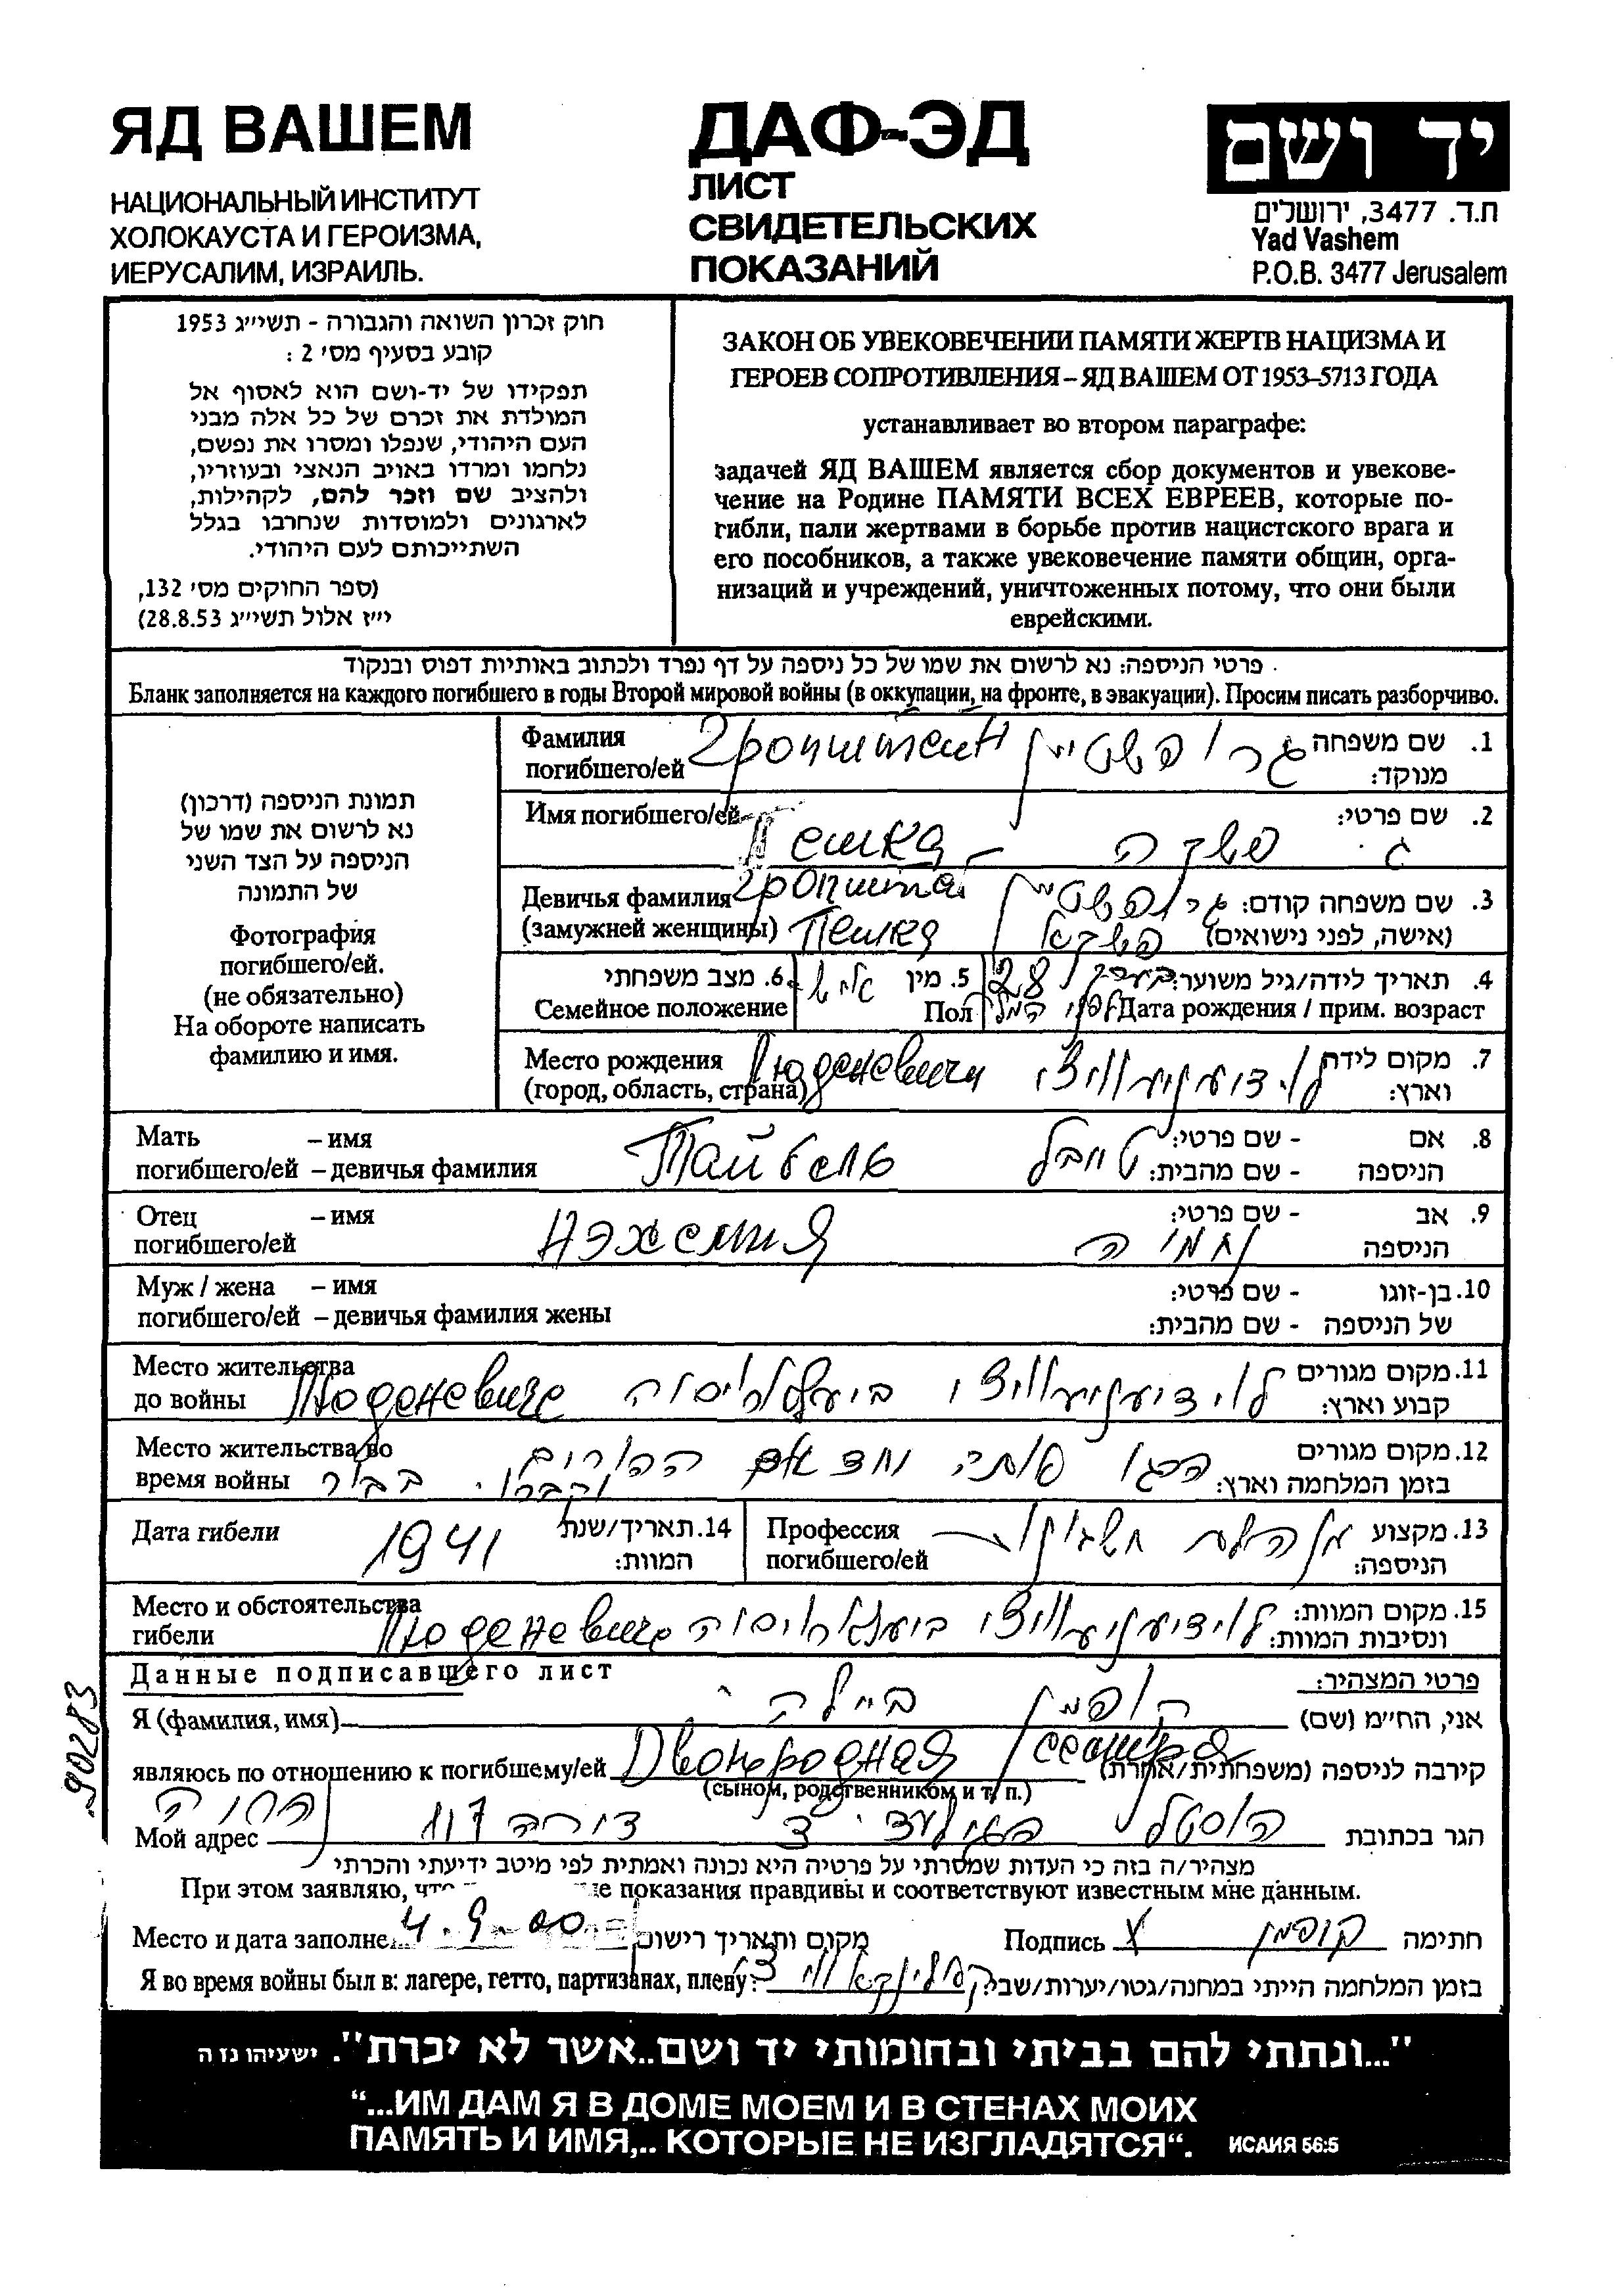 ЯД ВАШЕМ
НАЦИОНАЛЬНЫЙ ИНСТИТУТ
ХОЛОКАУСТА И ГЕРОИЗМА,
ИЕРУСАЛИМ, ИЗРАИЛЬ.
ДАФ-ЭД
ЛИСТ
СВИДЕТЕЛЬСКИХ
ПОКАЗАНИЙ
יד ושם
ת.ד. 3477, ירושלים
Yad Vashem
P.O.B. 3477 Jerusalem
חוק זכרון השואה והגבורה - תשי״ג 1953
קובע בסעיף מס׳ 2 :
תפקידו של יד-ושם הוא לאסוף אל
המולדת את זכרם של כל אלה מבני
העם היהודי, שנפלו ומסרו את נפשם,
נלחמו ומרדו באויב הנאצי ובעוזריו,
ולהציב שם וזכר להם, לקהילות,
לארגונים ולמוסדות שנחרבו בגלל
השתייכותם לעם היהודי.
(ספר החוקים מס׳ 132,
י״ז אלול תשי״ג 28.8.53)
ЗАКОН ОБ УВЕКОВЕЧЕНИИ ПАМЯТИ ЖЕРТВ НАЦИЗМА И
ГЕРОЕВ СОПРОТИВЛЕНИЯ – ЯД ВАШЕМ ОТ 1953–5713 ГОДА
устанавливает во втором параграфе:
задачей ЯД ВАШЕМ является сбор документов и увекове-
чение на Родине ПАМЯТИ ВСЕХ ЕВРЕЕВ, которые по-
гибли, пали жертвами в борьбе против нацистского врага и
его пособников, а также увековечение памяти общин, орга-
низаций и учреждений, уничтоженных потому, что они были
еврейскими.
פרטי הניספה: נא לרשום את שמו של כל ניספה על דף נפרד ולכתוב באותיות דפוס ובנקוד
Бланк заполняется на каждого погибшего в годы Второй мировой войны (в оккупации, на фронте, в эвакуации). Просим писать разборчиво.
תמונת הניספה (דרכון)
נא לרשום את שמו של
הניספה על הצד השני
של התמונה
Фотография
погибшего/ей.
(не обязательно)
На обороте написать
фамилию и имя.
Фамилия Гропштейн גרופשטיין 1. שם משפחה
погибшего/ей מנוקד:
Имя погибшего/ей Пешка פשקה 2. שם פרטי:
Девичья фамилия גרופשטיין 3. שם משפחה קודם:
(замужней женщины) Пешка (אישה, לפני נישואים)
6. מצב משפחתי 5. מין 28 4. תאריך לידה/גיל משוער:
Семейное положение Пол Дата рождения / прим. возраст
Место рождения Люденевичи 7. מקום לידה
(город, область, страна) וארץ:
Мать – имя Тайбель טייבל - שם פרטי: 8. אם
погибшего/ей – девичья фамилия - שם מהבית: הניספה
Отец – имя - שם פרטי: 9. אב
погибшего/ей Нэхемия נחמיה הניספה
Муж / жена – имя - שם פרטי: 10. בן-זוגו
погибшего/ей – девичья фамилия жены - שם מהבית: של הניספה
Место жительства Люденевичи ביעלארוסיה 11. מקום מגורים
до войны קבוע וארץ:
Место жительства во הרגו אותה וחצ אם ההורים 12. מקום מגורים
время войны בבור בזמן המלחמה וארץ:
Дата гибели 1941 14. תאריך/שנת המוות:
Профессия 13. מקצוע
погибшего/ей מנהלת חשבון הניספה:
Место и обстоятельства Люденевичи ביעלארוסיה 15. מקום המוות:
гибели ונסיבות המוות:
Данные подписавшего лист פרטי המצהיר:
Я (фамилия, имя) קופמן ביילה אני, הח״מ (שם)
являюсь по отношению к погибшему/ей Двоюродная сестра קירבה לניספה (משפחתית/אחרת)
(сыном, родственником и т. п.)
Мой адрес הוסטל הגר בכתובת
מצהיר/ה בזה כי העדות שמסרתי על פרטיה היא נכונה ואמתית לפי מיטב ידיעתי והכרתי
При этом заявляю, что показания правдивы и соответствуют известным мне данным.
Место и дата заполне 4.9.00 מקום ותאריך רישום Подпись קופמן חתימה
Я во время войны был в: лагере, гетто, партизанах, плену: בזמן המלחמה הייתי במחנה/גטו/יערות/שבי:
90283
"...ונתתי להם בביתי ובחומותי יד ושם..אשר לא יכרת". ישעיהו נז ה
“...ИМ ДАМ Я В ДОМЕ МОЕМ И В СТЕНАХ МОИХ
ПАМЯТЬ И ИМЯ,.. КОТОРЫЕ НЕ ИЗГЛАДЯТСЯ“. ИСАИЯ 56:5